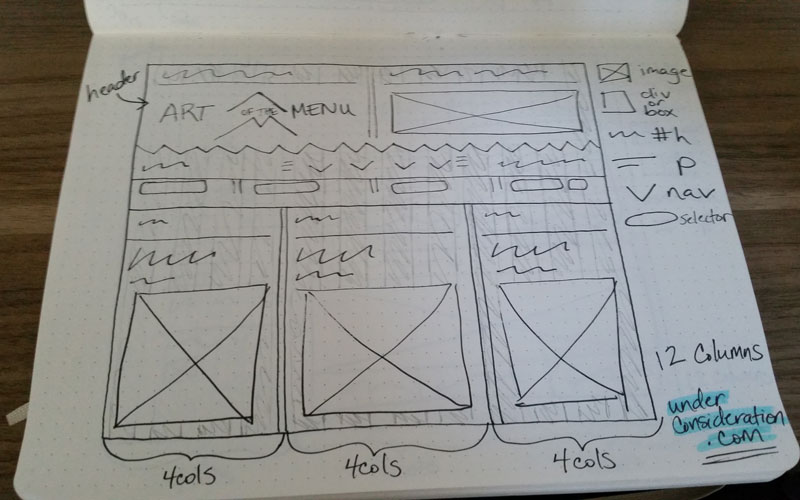 header
ART OF THE MENU
image
div
or
box
#h
p
nav
selector
12 Columns
under
consideration
.com
4cols
4cols
4cols